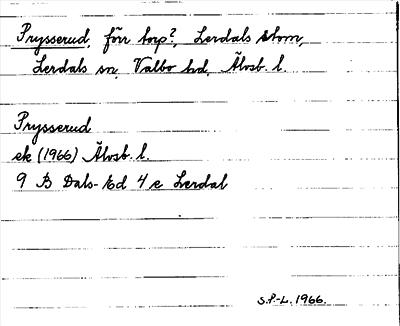 Prysserud, förr torp?, Lerdals kom,
Lerdals sn, Valbo hd, Älvsb. l.
Prysserud
ek (1966) Älvsb. l.
9 B Dals- Ed 4 e Lerdal
S.P-L. 1966.